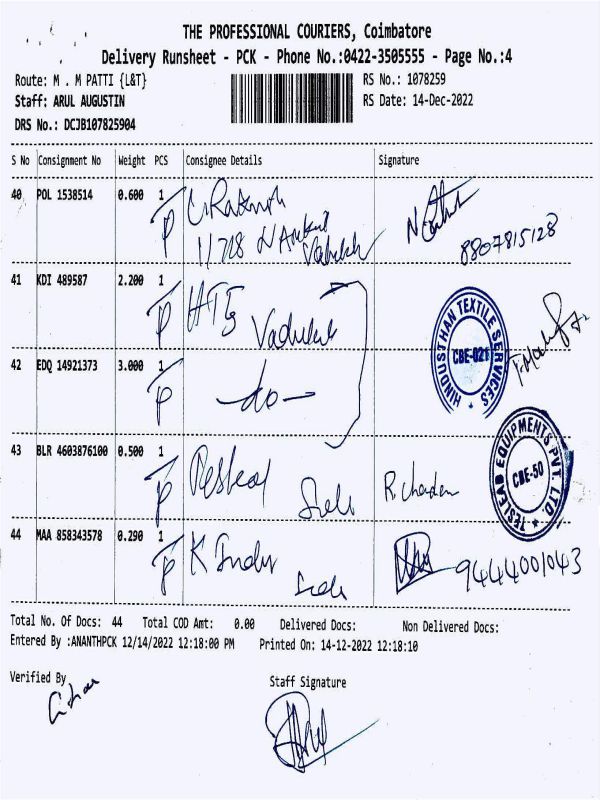 THE PROFESSIONAL COURIERS, Coimbatore
Delivery Runsheet - PCK - Phone No.:0422-3505555 - Page No.:4
Route: M . M PATTI {L&T}
RS No.: 1078259
Staff: ARUL AUGUSTIN
RS Date: 14-Dec-2022
DRS No.: DCJB107825904
S No Consignment No Weight PCS Consignee Details Signature
40 POL 1538514 0.600 1
P
11/728
8807815128
41 KDI 489587 2.200 1
P HTS
HINDUSTHAN TEXTILE SERVICES
CBE-021
42 EDQ 14921373 3.000 1
P -do-
43 BLR 4603876100 0.500 1
P
TESLEAD EQUIPMENTS PVT. LTD.
CBE-50
44 MAA 858343578 0.290 1
P K
9444001043
Total No. Of Docs: 44 Total COD Amt: 0.00 Delivered Docs: Non Delivered Docs:
Entered By :ANANTHPCK 12/14/2022 12:18:00 PM Printed On: 14-12-2022 12:18:10
Verified By
Staff Signature